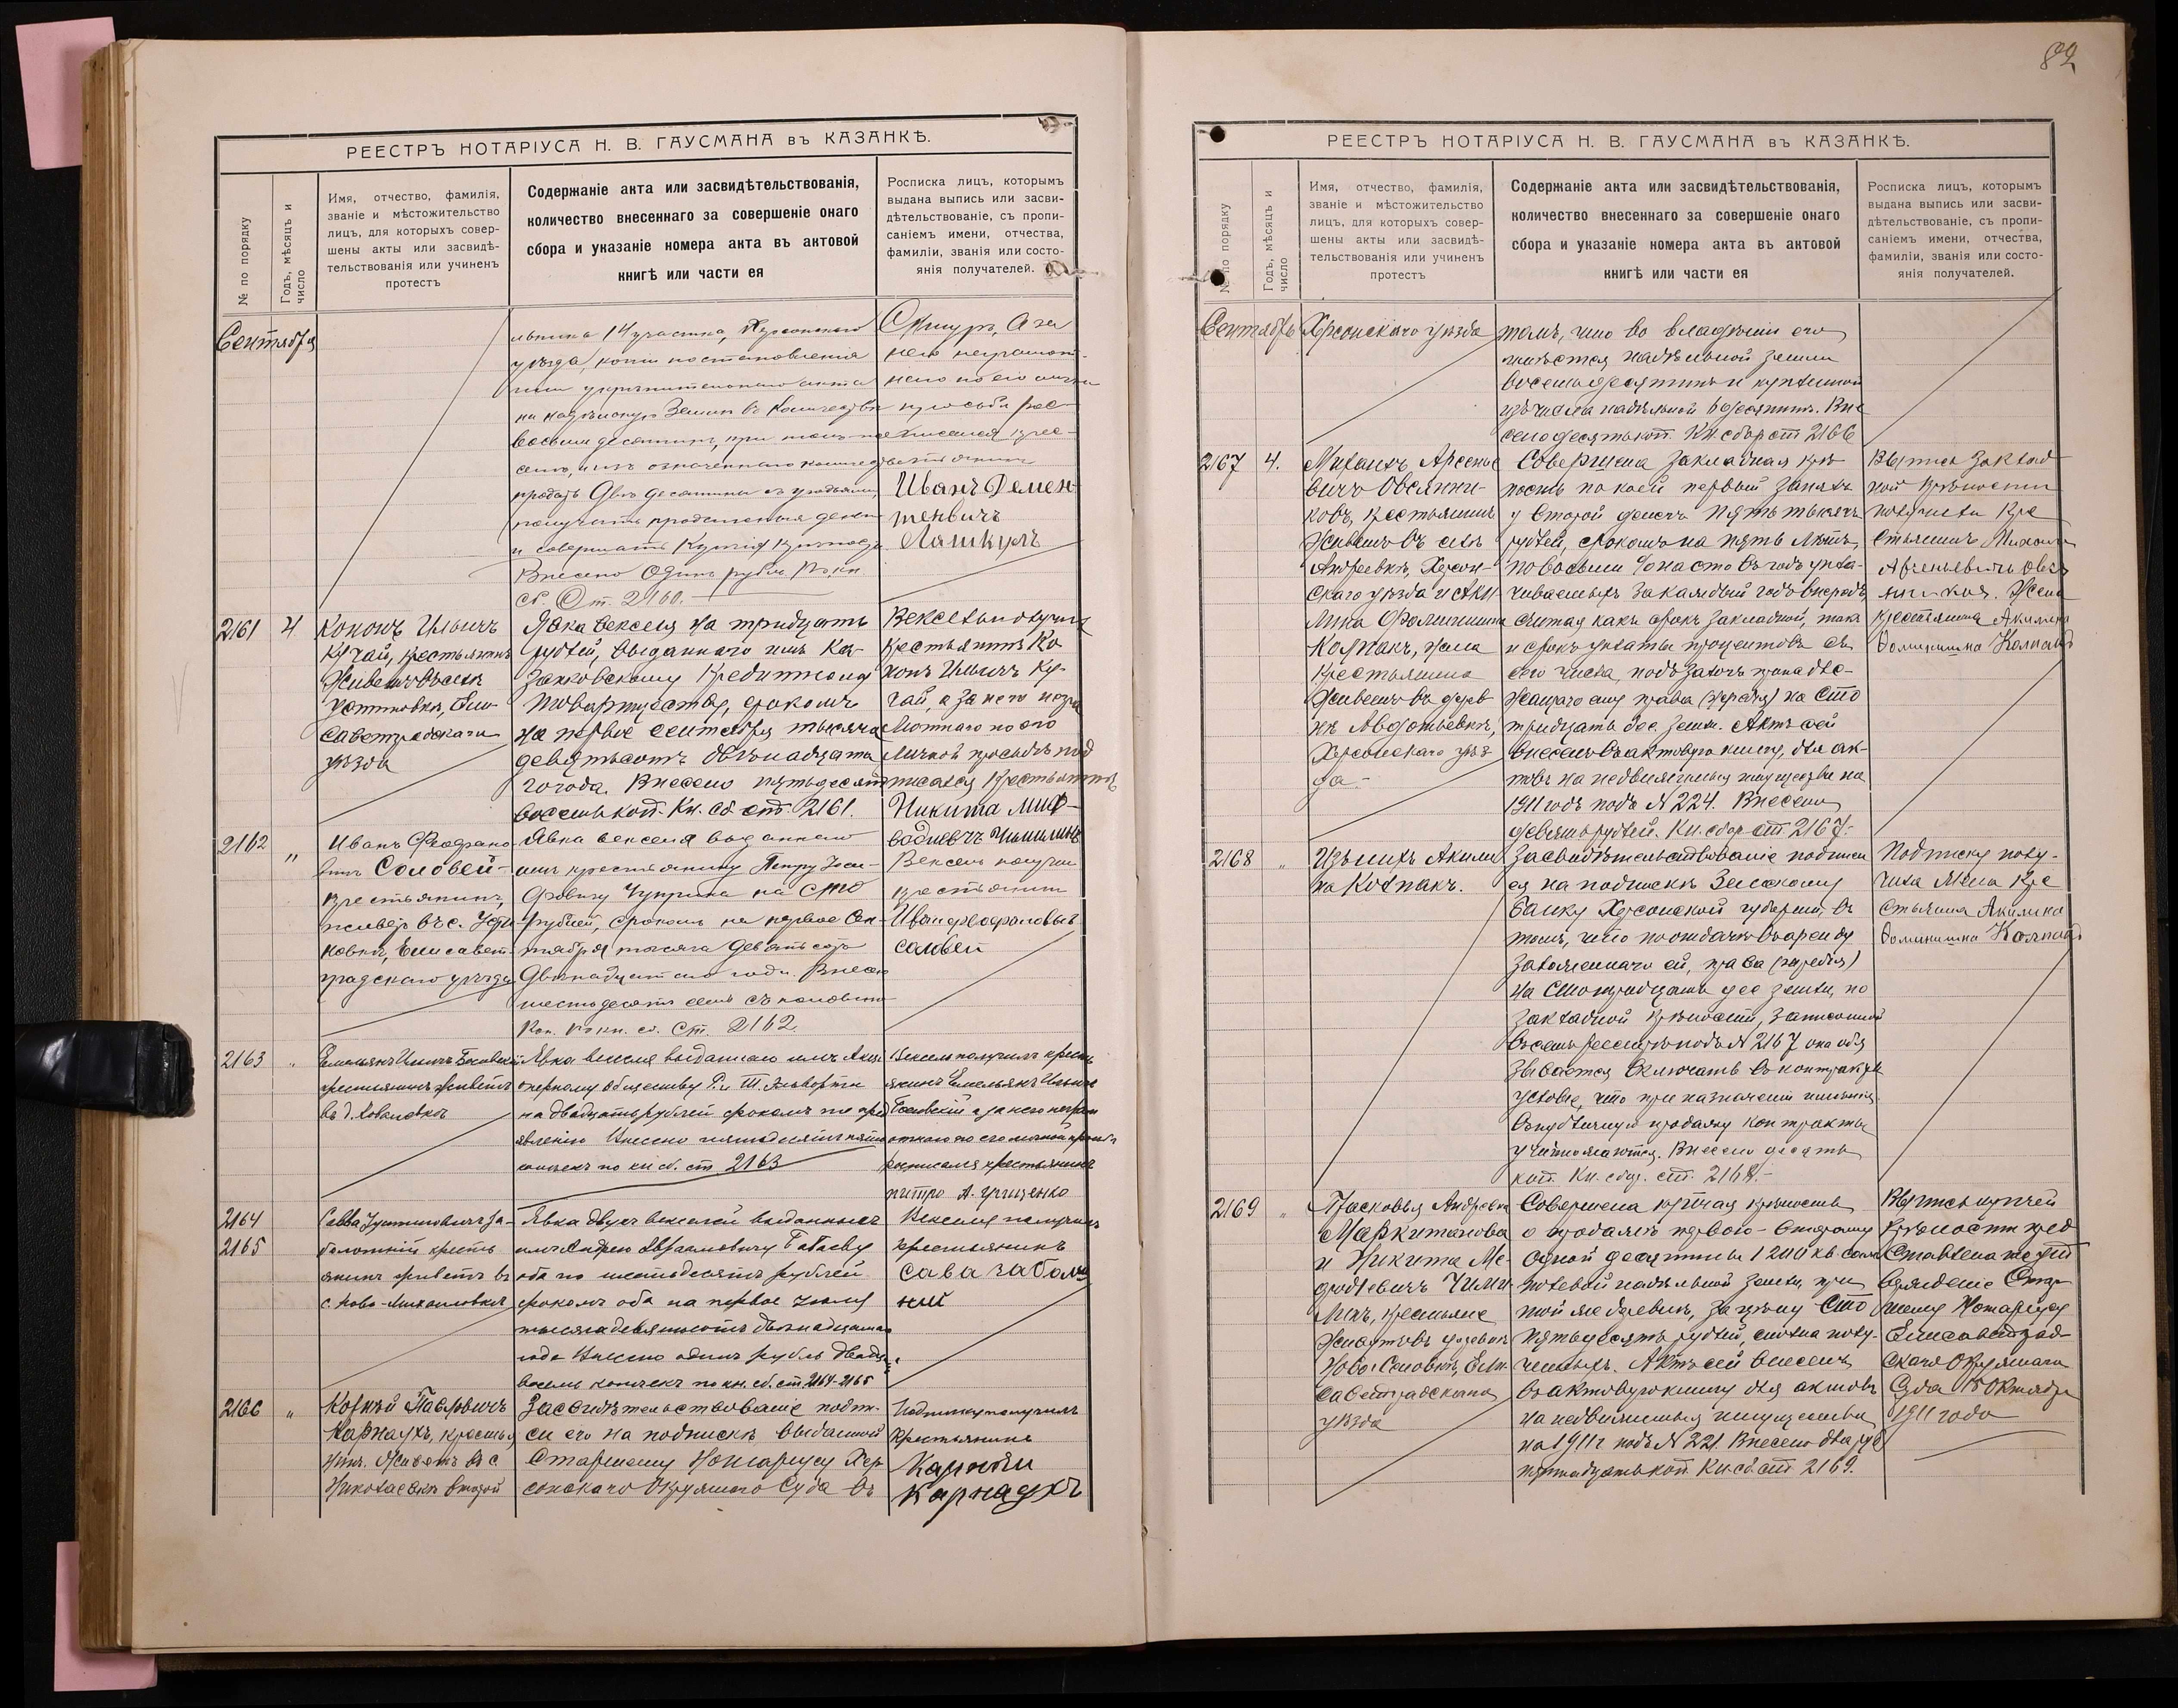 82
РЕЕСТРЪ НОТАРІУСА Н. В. ГАУСМАНА въ КАЗАНКѢ.
№ по порядку
Годъ, мѣсяцъ и число
Имя, отчество, фамилія,
званіе и мѣстожительство
лицъ, для которыхъ совер-
шены акты или засвидѣ-
тельствованія или учиненъ
протестъ
Содержаніе акта или засвидѣтельствованія,
количество внесеннаго за совершеніе онаго
сбора и указаніе номера акта въ актовой
книгѣ или части ея
Росписка лицъ, которымъ
выдана выпись или засви-
дѣтельствованіе, съ пропи-
саніемъ имени, отчества,
фамиліи, званія или состо-
янія получателей.
Сентября
14 участка, Херсонскаго
уѣзда, копіи постановленія
или укрѣпительнаго акта
восьми десятинъ, при
продать двѣ десятины
получить деньги
и совершить купчія
Внесено одинъ рубль
Сб. Ст. 2160.
а за
него неграмот-
наго по его
просьбѣ рос-
Иванъ Демен
тьевичъ
Лашкулъ
2161 4
Кононъ Ильичъ
Кучай, крестьянинъ
Живетъ въ селѣ
Устиновкѣ, Ели-
саветградскаго
уѣзда
Явка векселя на тридцать
рублей, выданнаго имъ Ка-
занковскому Кредитному
товариществу, срокомъ
на первое сентября тысяча
девятьсотъ двѣнадцата
го года. Внесено пятьдесят
восемь коп. Кн. сб. ст. 2161.
Вексель получилъ
крестьянинъ Ко
нонъ Ильичъ Ку-
чай, а за него негра
мотнаго по его
личной просьбѣ под
писался крестьянинъ
Никита Миф-
одиевичъ Чимилинъ
2162 „
Иванъ Феофано
вичъ Соловей-
крестьянинъ,
живетъ въ с. Усти-
новкѣ, Елисавет-
градскаго уѣзда
Явка векселя выданнаго
имъ крестьянину Петру Іоси-
фовичу Чуприна на сто
рублей, срокомъ на первое Сен-
тября тысяча девятьсотъ
двѣнадцатаго года. Внесено
шестьдесятъ семь съ половино
Коп. по кн. сб. Ст. 2162
Вексель получилъ
крестьянинъ
Иван феофановыв
саловей
2163 „
Емельянъ Ильичъ
крестьянинъ живетъ
въ д.
Явка векселя выданнаго имъ Акці
онерному обществу Р. и Т. Эльворти
на двадцать рублей срокомъ по пред
явленію Внесено пятьдесятъ пять
копѣекъ по кн. сб. ст 2163
Вексель получилъ крестья
янинъ Емельянъ Ильичъ
а за него неграм
отнаго по его личной просьбѣ
росписался крестьянинъ
петро А. грищенко
2164
2165
Савва Іустиновичъ За-
болотній кресть
янинъ живетъ въ
с. Ново-Михаиловкѣ
Явка двухъ векселей выданныхъ
имъ Андрею Абрамовичу Бабаеву
оба по шестьдесятъ рублей
срокомъ оба на первое іюля
тысяча девятьсотъ двѣнадцатаго
года Внесено одинъ рубль двадц.
восемь копѣекъ по кн. сб. ст. 2164-2165
Векселя получилъ
крестьянинъ
сава заболи
ний
2166 „
Корнѣй Павловичъ
Карнаухъ, крестья
нинъ. Живетъ въ с.
Николаевкѣ второй
Засвидѣтельствованіе подпи-
си его на подпискѣ, выданной
Старшему Нотаріусу Хер
сонскаго Окружнаго Суда въ
Подписку получилъ
Крестьянинъ
Карней
Карнаухъ
РЕЕСТРЪ НОТАРІУСА Н. В. ГАУСМАНА въ КАЗАНКѢ.
№ по порядку
Годъ, мѣсяцъ и число
Имя, отчество, фамилія,
званіе и мѣстожительство
лицъ, для которыхъ совер-
шены акты или засвидѣ-
тельствованія или учиненъ
протестъ
Содержаніе акта или засвидѣтельствованія,
количество внесеннаго за совершеніе онаго
сбора и указаніе номера акта въ актовой
книгѣ или части ея
Росписка лицъ, которымъ
выдана выпись или засви-
дѣтельствованіе, съ пропи-
саніемъ имени, отчества,
фамиліи, званія или состо-
янія получателей.
Сентябрь
Херсонскаго уѣзда
томъ, что во владѣніи его
имѣется надѣльной земли
восемь десятинъ и купленной
изъ числа надѣльной 6 десятинъ. Вне
сено десять коп. Кн. сбор ст 2166
2167 4.
Михаилъ Арсенье
вичъ Овсянни-
ковъ, крестьянинъ
Живетъ въ селѣ
Андреевкѣ, Херсон-
скаго уѣзда и Аки-
лина Фоминишна
Колпакъ, жена
крестьянина
Живетъ въ дерев
нѣ Авдотьевкѣ,
Херсонскаго уѣз-
да-
Совершена закладная крѣ
пость по коей первый занялъ
у второй денегъ пять тысячъ
рублей, срокомъ на пять лѣтъ,
по восьми % на сто въ годъ упла-
чиваемыхъ за каждый годъ впередъ,
считая какъ срокъ закладной, такъ
и срокъ уплаты процентовъ съ
сего числа, подъ залогъ принадле-
жащаго ему права (жребія) на сто
тридцать дес. земли. Актъ сей
внесенъ въ актовую книгу, для ак-
товъ на недвижимыя имущества на
1911 годъ подъ N 224. Внесено
девять рублей. Кн. сбор ст 2167.-
Выпись заклад
ной крѣпости
получила Кре
стьянинъ Михаилъ
Арсеньевичъ Овся
нниковъ. Жена
крестьянина Акилина
Фоминишна Колпакъ
2168 „
Изъ нихъ Акили
на Колпакъ.
Засвидѣтельствованіе подписи
ея на подпискѣ Земскому
банку Херсонской губерніи, въ
томъ, что по отдачѣ въ аренду
заложеннаго ей, права (жребія)
на сто тридцать дес земли, по
закладной крѣпости, записанной
въ семъ реестрѣ подъ N 2167 она обя
зывается включать въ контрактъ
условіе, что при назначеніи имѣнія
въ публичную продажу контракты
уничтожаются. Внесено десять
коп. Кн. сбор. ст. 2168.-
Подписку полу-
чила Жена Кре
стьянина Акилина
Фоминишна Колпакъ
2169 „
Прасковья Андреевна
Маркитанова
и Никита Ме-
фодіевичъ Чими-
линъ, крестьяне
Живутъ въ деревнѣ
Ново-Сановкѣ, Ели-
саветградскаго
уѣзда
Совершена купчая крѣпость
о продажѣ первою - второму
одной десятины 1200 кв. саж
полевой надѣльной земли, при
той же деревнѣ, за цѣну сто
пятьдесятъ рублей, сполна полу-
ченныхъ. Актъ сей внесенъ
въ актовую книгу для актовъ
на недвижимыя имущества
на 1911 г подъ N 221. Внесено два руб
пятнадцать коп. Кн. сб. ст 2169.
Выпись купчей
крѣпости пред
ставлена на утв
ержденіе Стар
шему Нотаріусу
Елисаветград-
скаго Окружнаго
Суда 15 Октября
1911 года